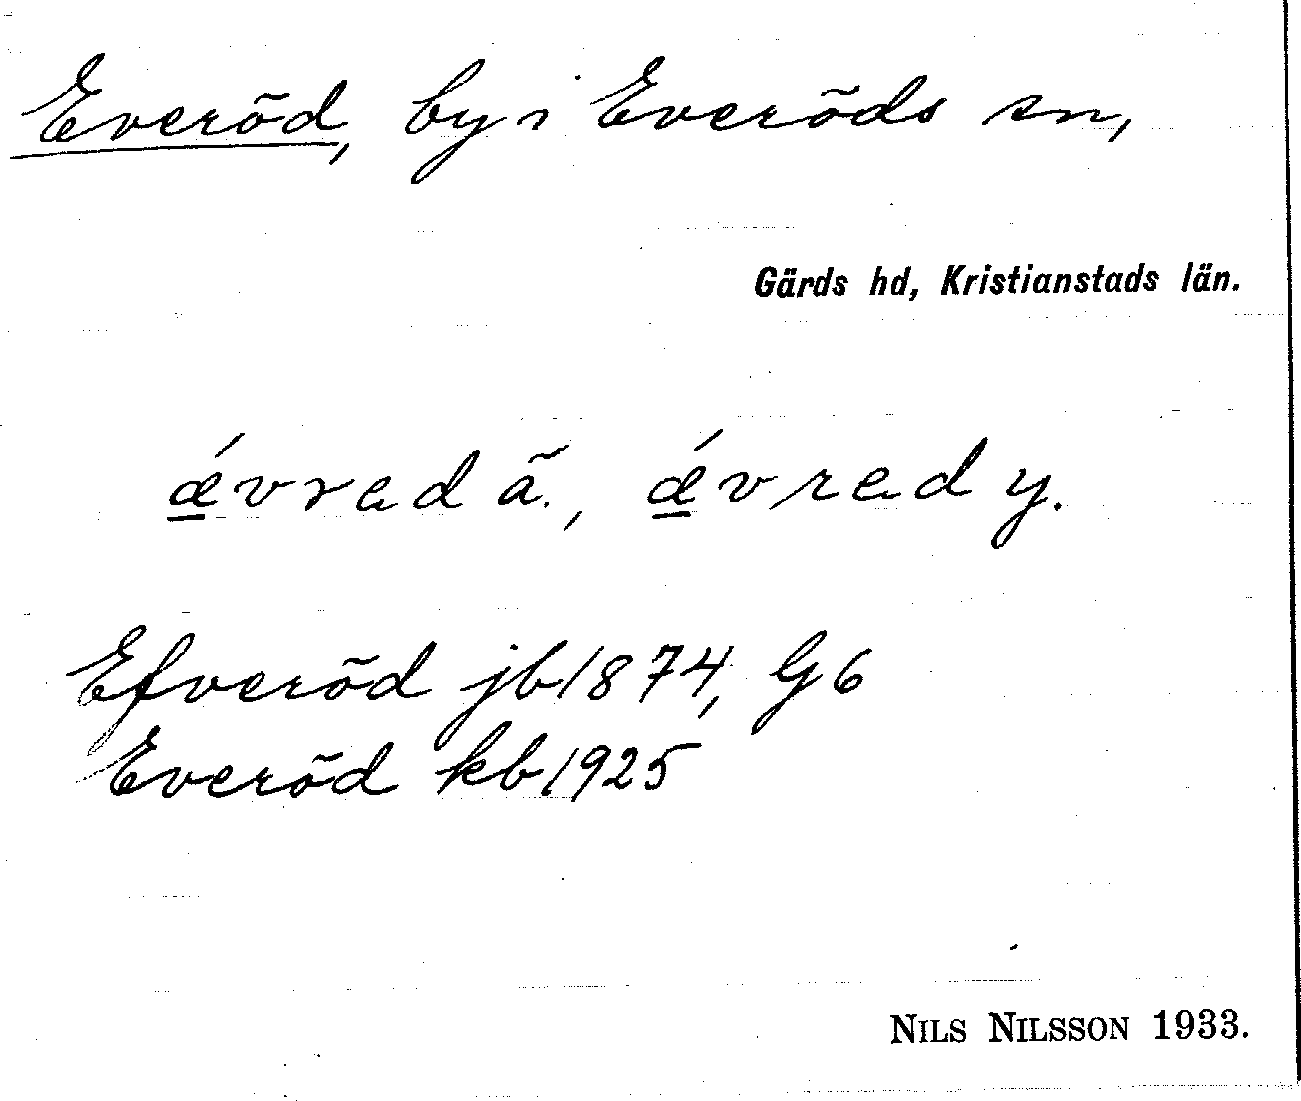 Everöd, by i Everöds sn,
Gärds hd, Kristianstads län.
ǽvrad ä., ǽvrad y.
Efveröd jb 1874, G 6
Everöd kb 1925
NILS NILSSON 1933.